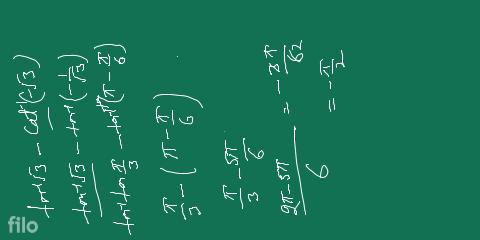 tan⁻¹√3 − cot⁻¹(−√3)
tan⁻¹√3 − tan⁻¹(−1/√3)
tan⁻¹ tan π/3 − tan⁻¹(π − π/6)
π/3 − (π − π/6)
π/3 − 5π/6
(2π−5π)/6 = −3π/6 2
= −π/2
filo